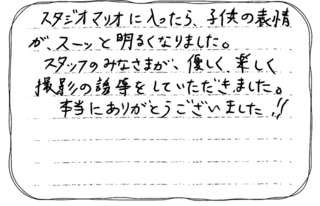 スタジオマリオに入ったら、子供の表情
が、スーッと明るくなりました。
スタッフのみなさまが、優しく、楽しく
撮影の誘導をしていただきました。
本当にありがとうございました!!